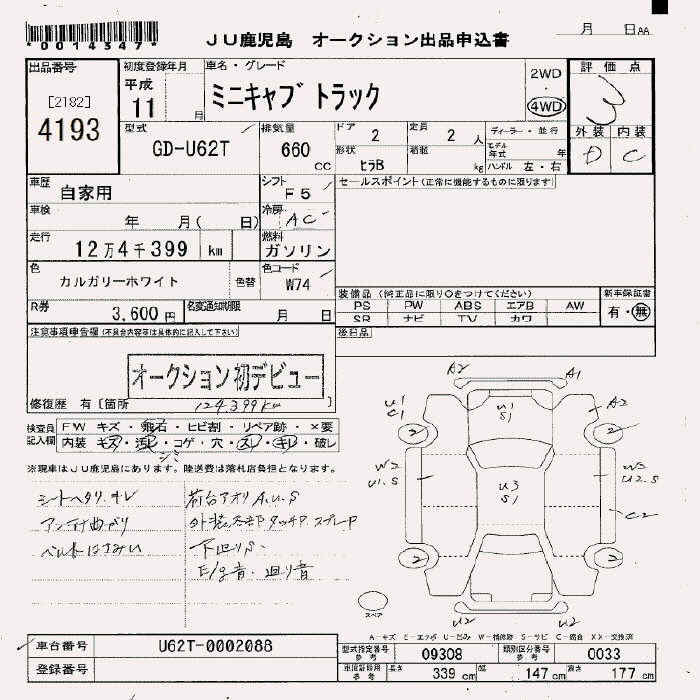 *0014347*
ＪＵ鹿児島　オークション出品申込書
月　日AA
出品番号
[2182]
4193
初度登録年月
平成
11 月
車名・グレード
ミニキャブ トラック
2WD
4WD
評価点
3
外装 内装
D C
型式
GD-U62T
排気量
660 CC
ドア 2
定員 2 人
形状 ヒラB
積載 kg
ディーラー・並行
モデル年式 年
ハンドル 左・右
車歴
自家用
シフト F5
セールスポイント(正常に機能するものに限ります)
車検 年 月( 日)
冷房 AC
走行 12万4千399 km
燃料 ガソリン
色
カルガリーホワイト
色替
色コード W74
R券 3,600円
名変通知期限 月 日
装備品 (純正品に限り○をつけてください)
PS PW ABS エアB AW
SR ナビ TV カワ
新車保証書
有・無
注意事項申告欄 (不具合内容等は具体的に記入して下さい)
後日品
オークション初デビュー
修復歴 有 [箇所 ]
124,399km
検査員記入欄
FW キズ・飛石・ヒビ割・リペア跡・×要
内装 キズ・汚レ・コゲ・穴・スレ・キレ・破レ
シミ
※現車はＪＵ鹿児島にあります。陸送費は落札店負担となります。
シートヘタリ、キレ
アンテナ曲がり
荷台アオリ A.U.S
下廻りS
E/g音・廻り音
A2 A1
U1 C1
A2
U1 S1
2 2
W2 U1.S
U3 S1
W3 U2.S
C2
2 2
U2 U2
スペア
A－キズ E－エクボ U－凹み W－補修跡 S－サビ C－腐食 XX－交換済
車台番号 U62T-0002088
登録番号
型式指定番号 参考 09308
類別区分番号 参考 0033
車庫証明用 参考 長さ 339 cm 幅 147 cm 高さ 177 cm